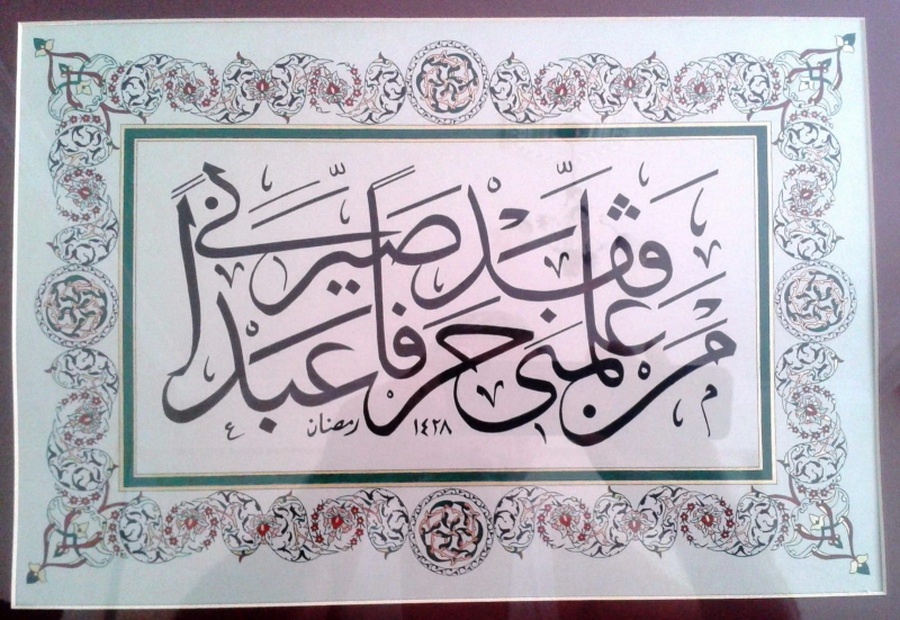 مَنْ عَلَّمَنِي حَرْفاً
فَقَدْ صَيَّرَنِي عَبْداً
رمضان ١٤٢٨